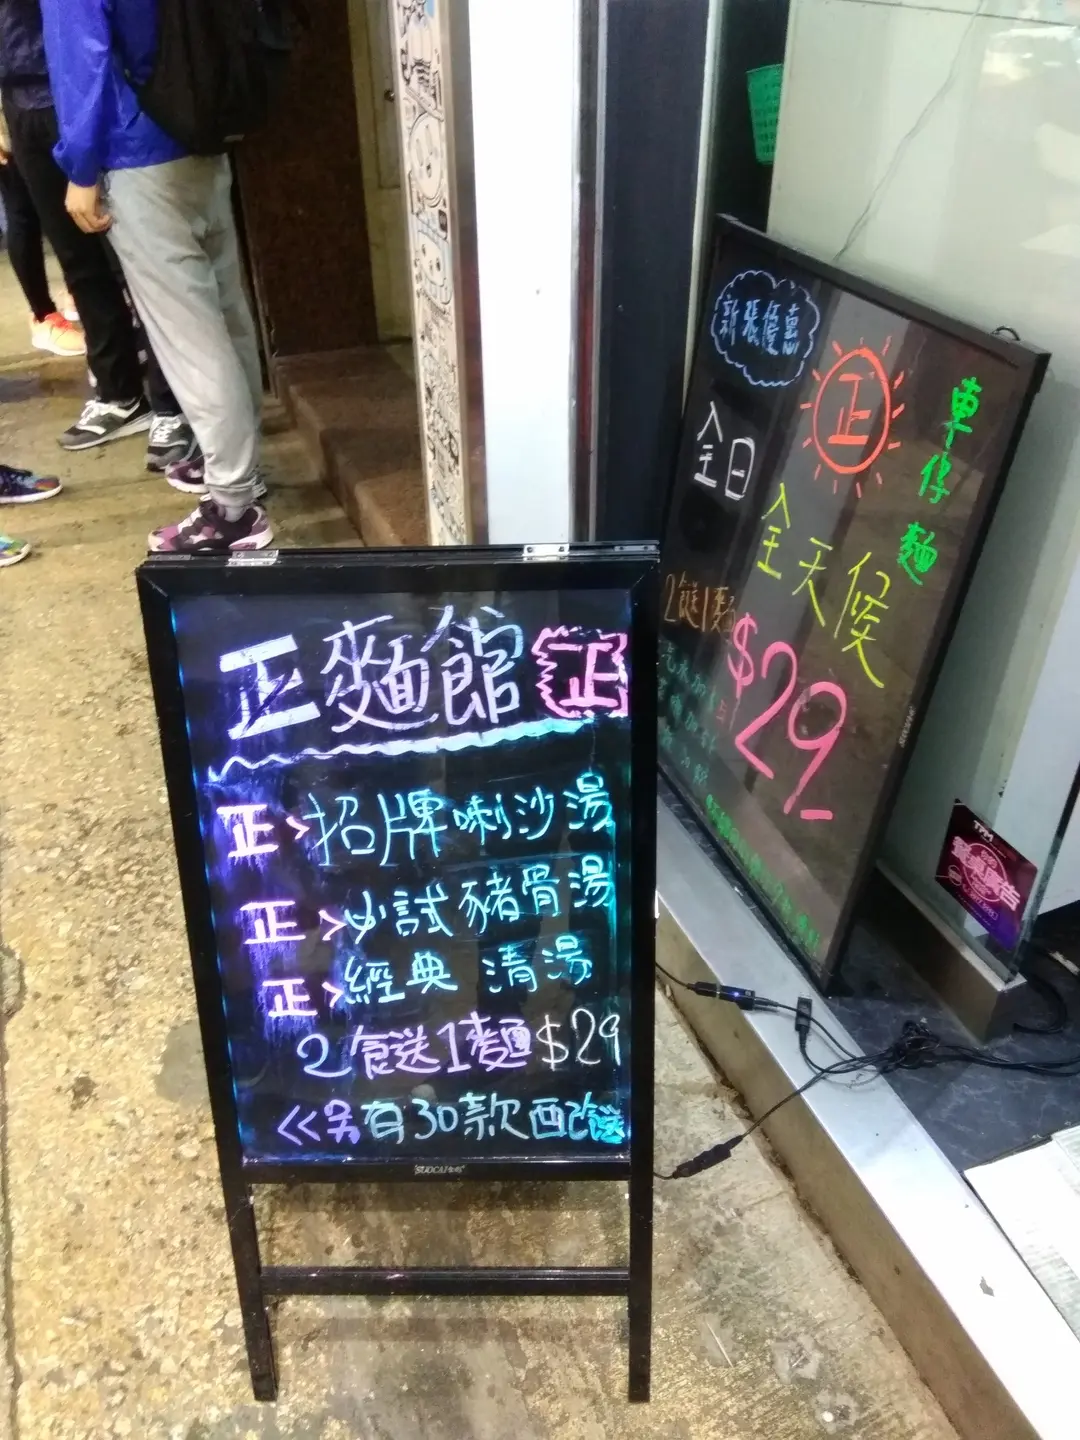 正麵館 正
正>招牌喇沙湯
正>必試豬骨湯
正>經典 清湯
2餸送1麵$29
<<另有30款西餸
SUOCAI
新張優惠
正
車仔麵
全日
全天候
2餸1麵
$29
汽水
TPM